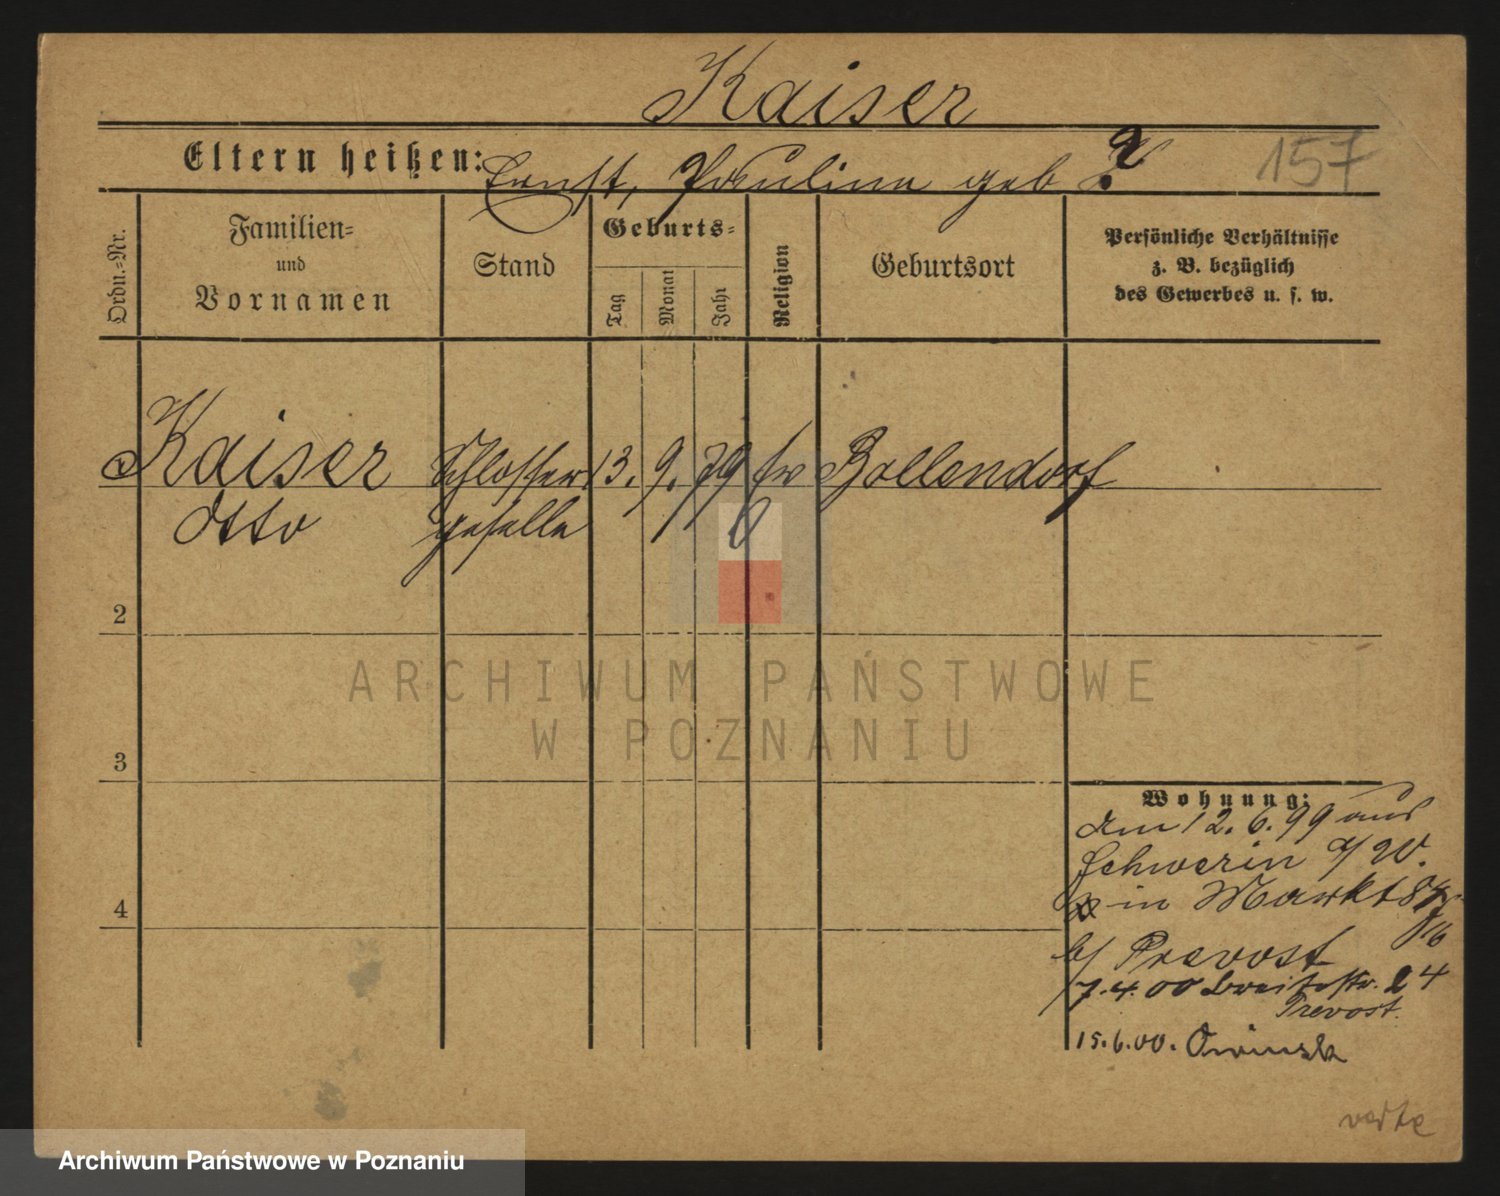 Kaiser
Eltern heißen: Ernst, Pauline geb ?
157
Ordn.-Nr.
Familien-
und
Vornamen
Stand
Geburts-
Tag
Monat
Jahr
Religion
Geburtsort
Persönliche Verhältnisse
z. B. bezüglich
des Gewerbes u. s. w.
Kaiser Schlosser 13. 9. 79 Bollendorf
Otto geselle
2
3
4
ARCHIWUM PAŃSTWOWE
W POZNANIU
Wohnung:
am 12. 6. 99 aus
Schwerin a/W.
in Markt 84
b/ Prevost
7.4.00 Breitestr. 24
Prevost.
15.6.00. Owinsk
verte
Archiwum Państwowe w Poznaniu